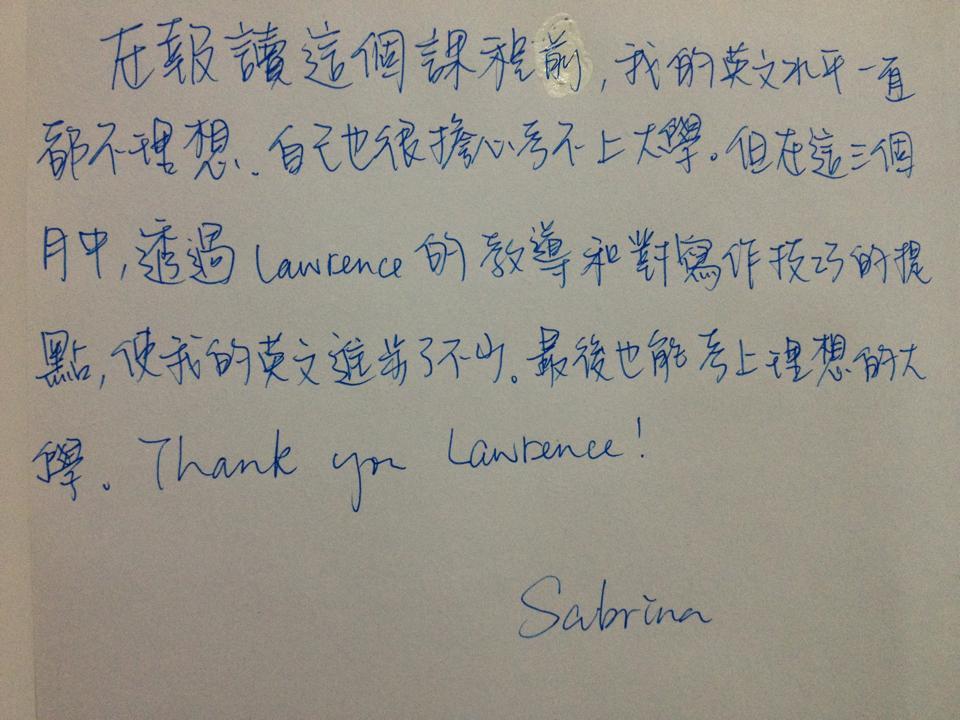 在報讀這個課程前,我的英文水平一直
都不理想.自己也很擔心考不上大學。但在這三個
月中,透過Lawrence的教導和對寫作技巧的提
點,使我的英文進步了不少。最後也能考上理想的大
學。Thank you Lawrence!
Sabrina